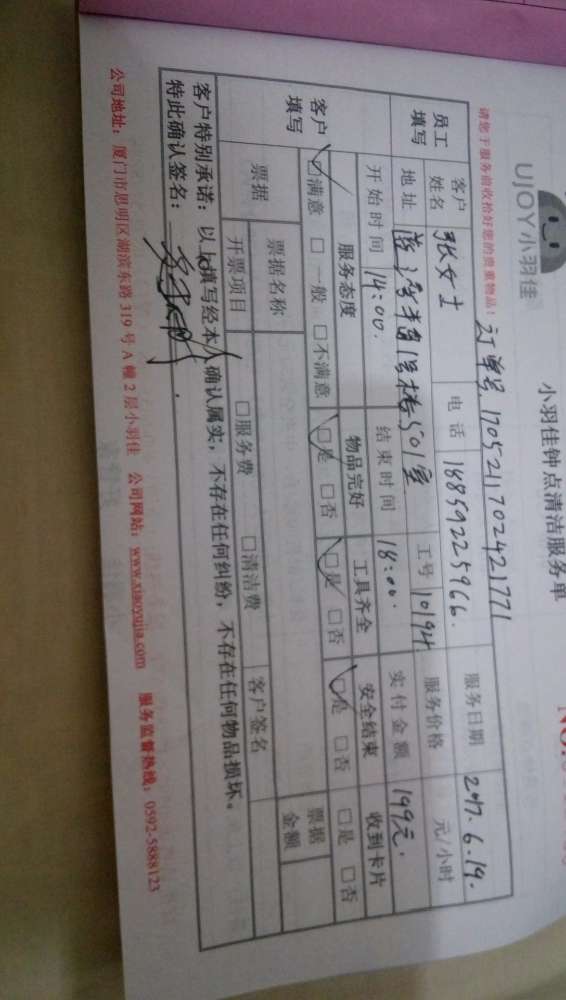 UJOY小羽佳
小羽佳钟点清洁服务单
请您于服务前收拾好您的贵重物品！
订单号 1705211702421771
员工填写
客户姓名 张女士 电话 18859225966 服务日期 2017.6.19.
地址 1号楼501室 工号 10194 服务价格 元/小时
开始时间 14:00. 结束时间 18:00. 实付金额 199元.
客户填写
服务态度 物品完好 工具齐全 安全结束 收到卡片
☑满意 □一般 □不满意 ☑是 □否 ☑是 □否 ☑是 □否 □是 □否
票据 票据名称 客户签名 票据金额
开票项目 □服务费 □清洁费
客户特别承诺：以上填写经本人确认属实，不存在任何纠纷，不存在任何物品损坏。
特此确认签名：
公司地址：厦门市思明区湖滨东路319号A幢2层小羽佳 公司网站：www.xiaoyujia.com 服务监督热线：0592-5888123